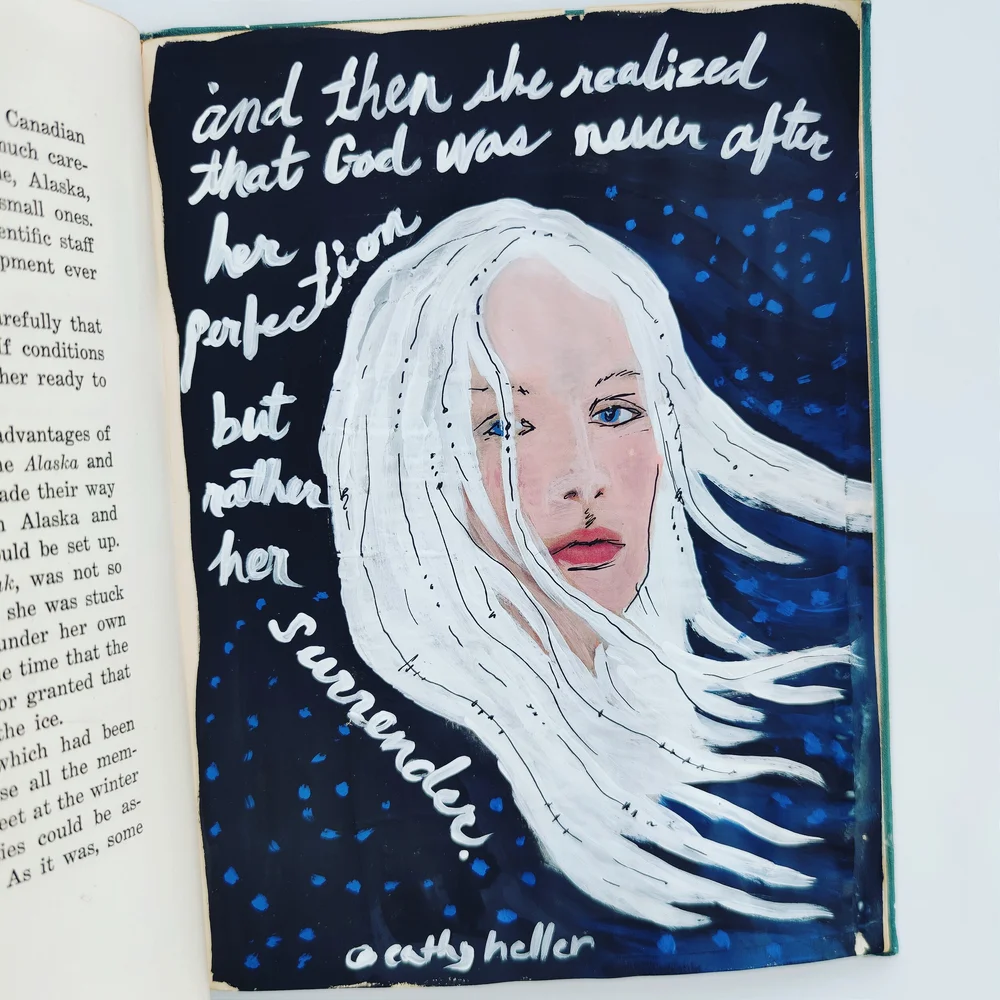 Canadian
much care-
e, Alaska,
small ones.
entific staff
pment ever
arefully that
If conditions
her ready to
advantages of
he Alaska and
ade their way
n Alaska and
ould be set up.
uk, was not so
she was stuck
under her own
e time that the
or granted that
the ice.
which had been
se all the mem-
eet at the winter
ies could be as-
As it was, some
and then she realized
that God was never after
her
perfection
but
rather
her
surrender.
@cathy heller